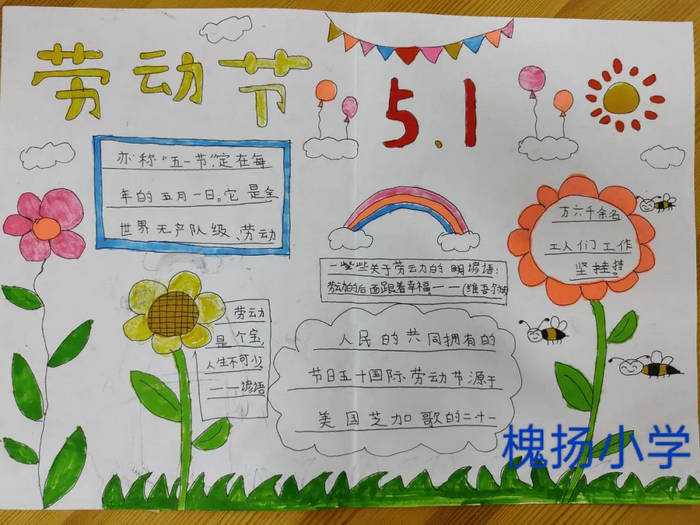 劳动节
5.1
亦称“五一节”,定在每
年的五月一日。它是全
世界无产队级、劳动
一些些关于劳动力的
劳动的后面跟着幸福——(维吾尔
万六千余名
工人们工作
坚持
劳动
是个宝
人生不可少
——谚语
人民的共同拥有的
节日五十国际劳动节源于
美国芝加歌的二十一
槐扬小学